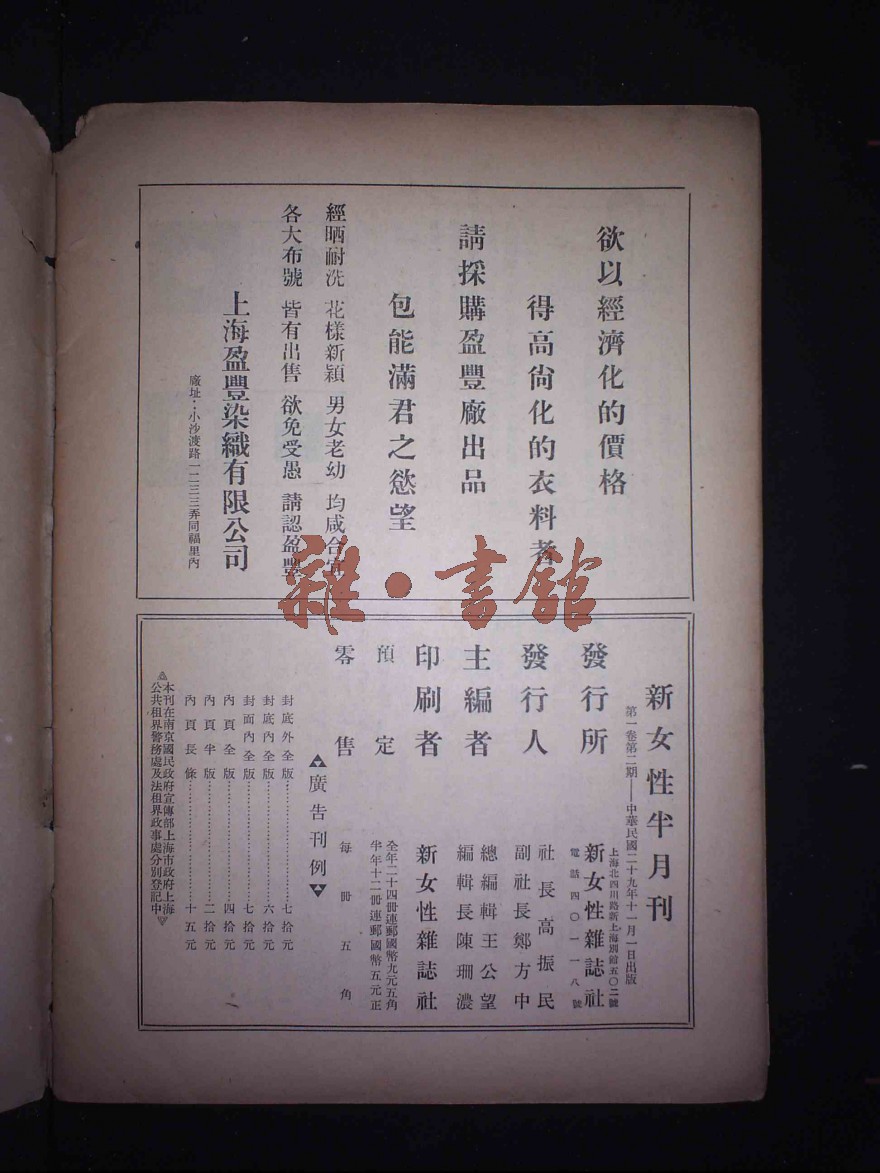 欲以經濟化的價格
得高尙化的衣料者
請採購盈豐廠出品
包能滿君之慾望
經晒耐洗 花樣新穎 男女老幼 均咸合宜
各大布號 皆有出售 欲免受愚 請認盈豐
上海盈豐染織有限公司
廠址：小沙渡路一二三三弄同福里內
雜·書館
新女性半月刊
第一卷第二期——中華民國二十九年十一月一日出版
發行所
上海北四川路新上海別館五〇二號
新女性雜誌社
電話四〇一一八號
發行人
社長高振民
副社長鄭方中
主編者
總編輯王公望
編輯長陳珊濃
印刷者 新女性雜誌社
預定
全年二十四冊連郵國幣九元五角
半年十二冊連郵國幣五元正
零售 每冊五角
廣告刊例
封底外全版………………七拾元
封底內全版………………六拾元
封面內全版………………七拾元
內頁全版………………四拾元
內頁半版………………二拾元
內頁長條………………十五元
本刊在南京國民政府宣傳部上海市政府上海
公共租界警務處及法租界政事處分別登記中